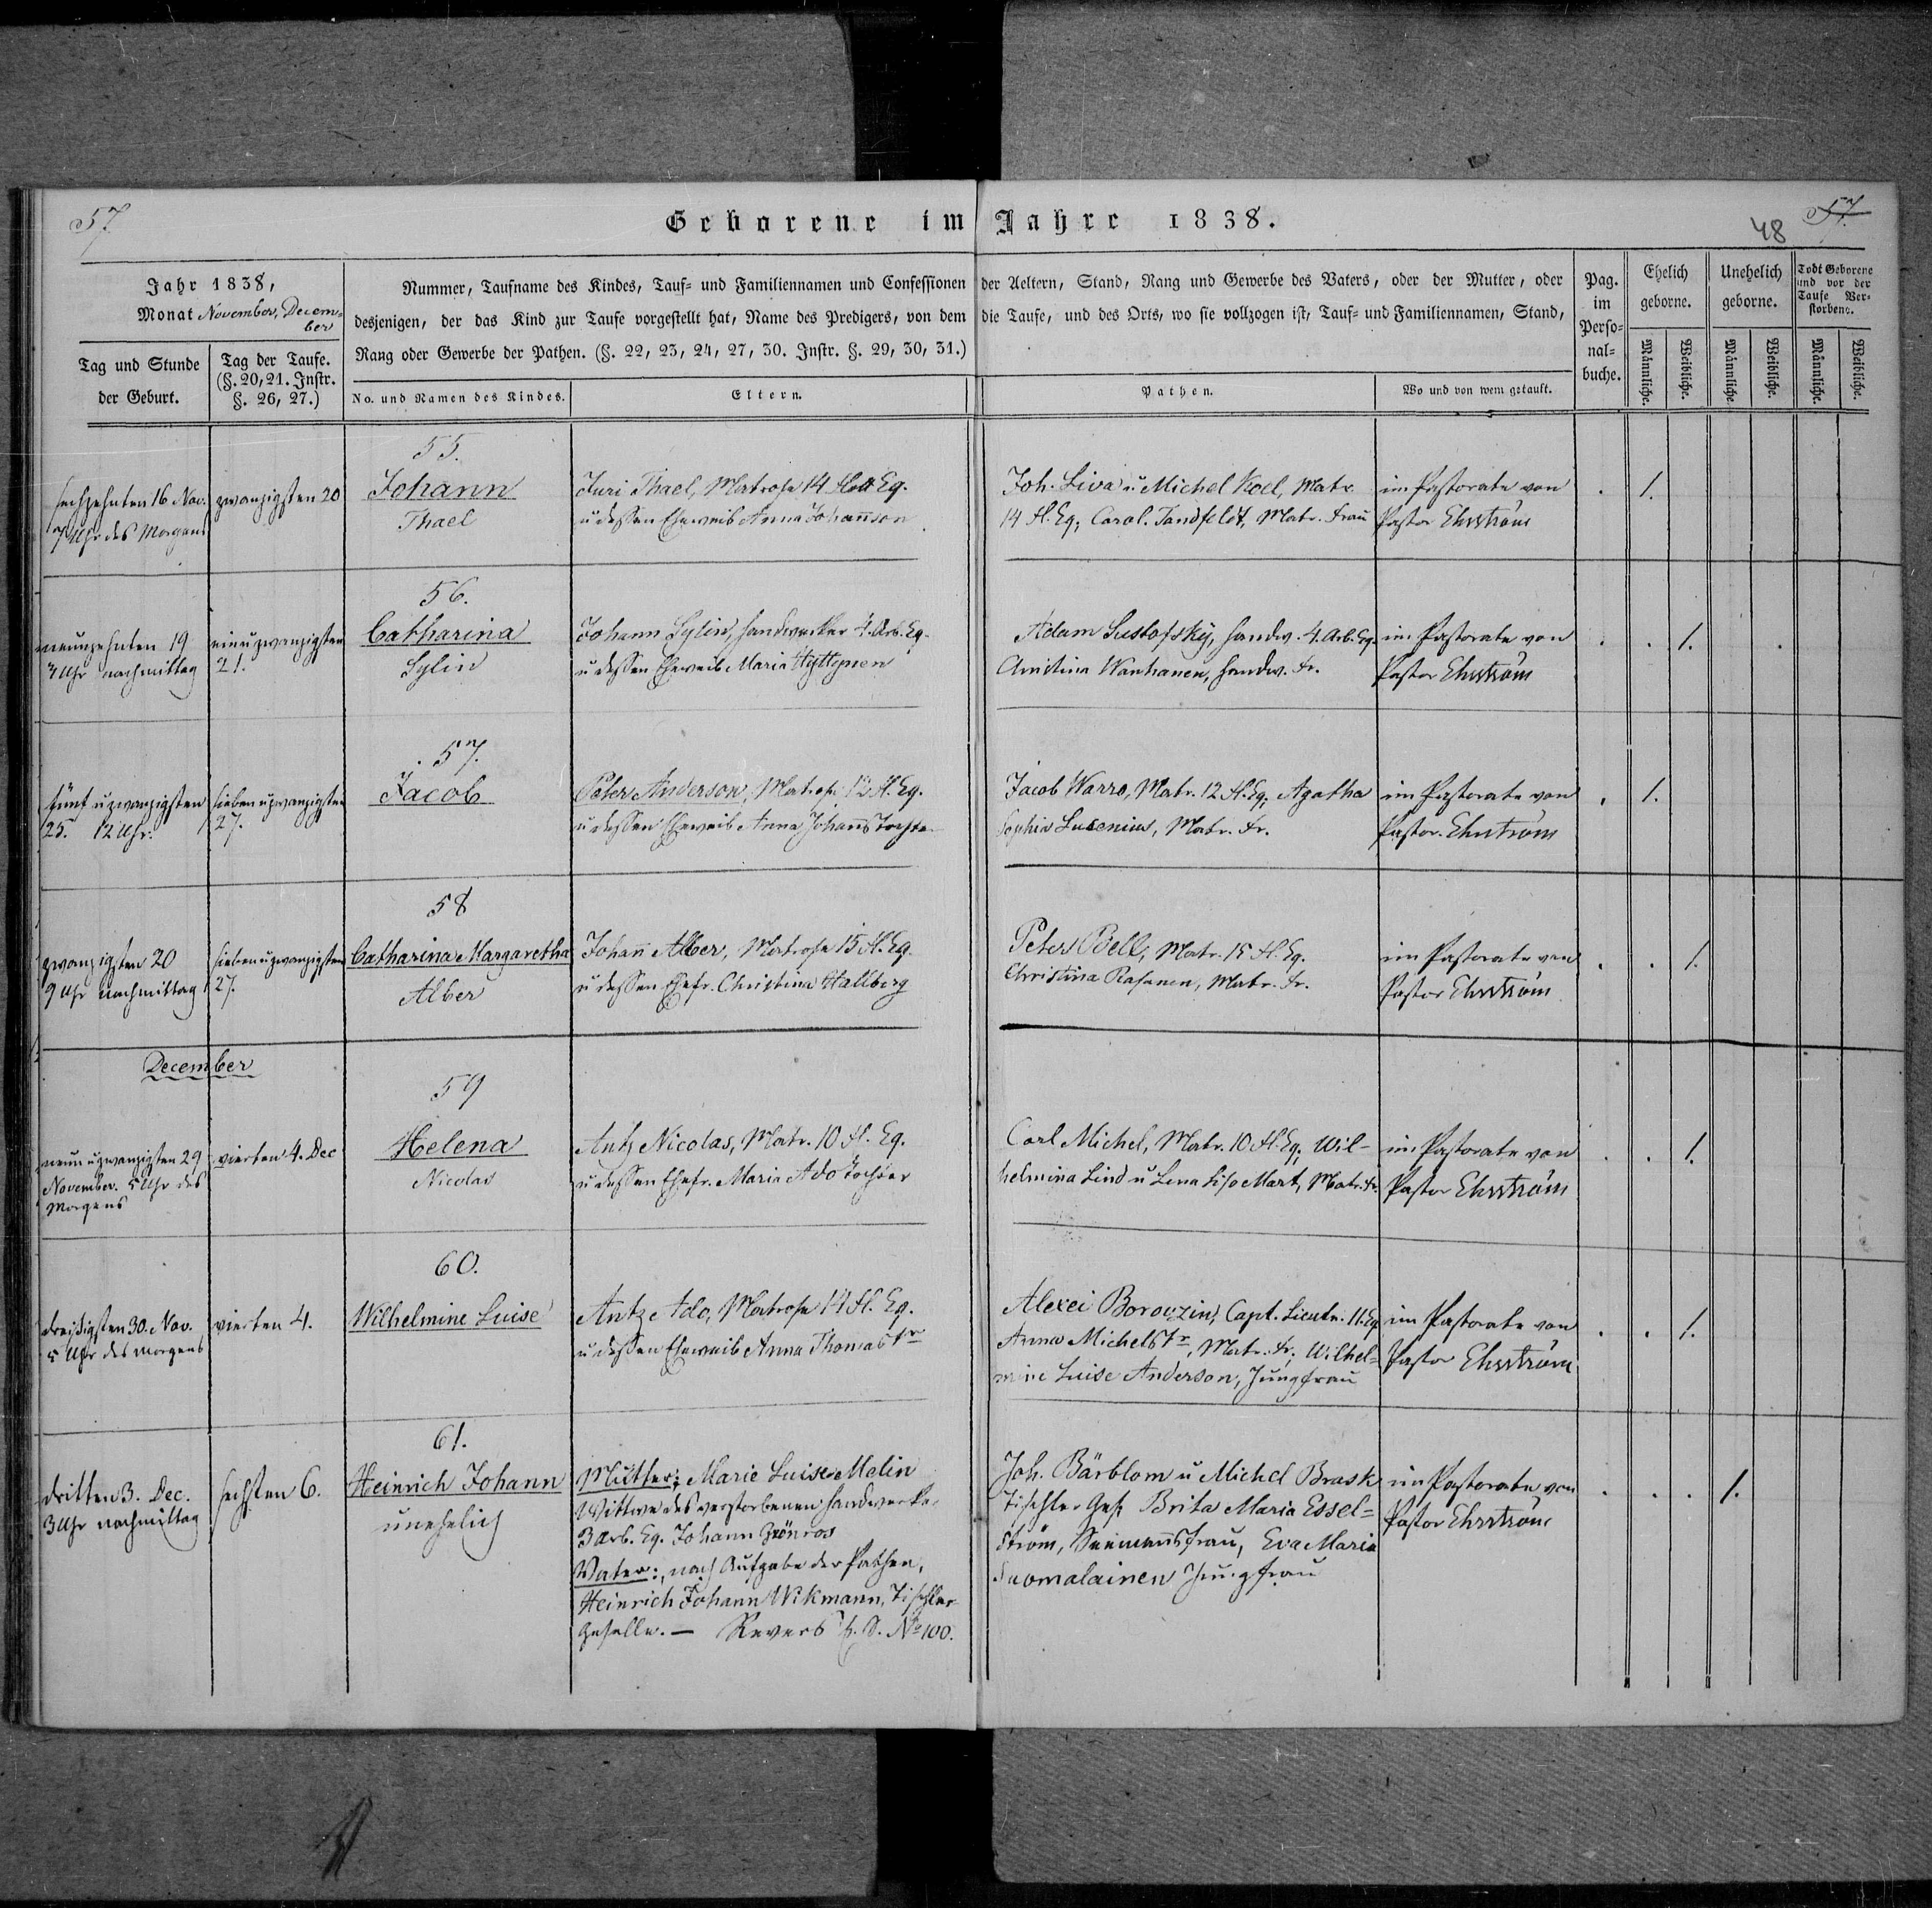 57.
Geborene im Jahre 1838.
57.
48
Jahr 1838,
Monat November, Decem-
ber
Tag und Stunde
der Geburt.
Tag der Taufe.
(§. 20, 21. Instr.
§. 26, 27.)
Nummer, Taufname des Kindes, Tauf- und Familiennamen und Confessionen der Aeltern, Stand, Rang und Gewerbe des Vaters, oder der Mutter, oder
desjenigen, der das Kind zur Taufe vorgestellt hat, Name des Predigers, von dem die Taufe, und des Orts, wo sie vollzogen ist, Tauf- und Familiennamen, Stand,
Rang oder Gewerbe der Pathen. (§. 22, 23, 24, 27, 30. Instr. §. 29, 30, 31.)
No. und Namen des Kindes.
Eltern.
Pathen.
Wo und von wem getauft.
Pag.
im
Perso=
nal=
buche.
Ehelich
geborne.
Unehelich
geborne.
Todt Geborene
und vor der
Taufe Ver=
storbene.
Männliche.
Weibliche.
Männliche.
Weibliche.
Männliche.
Weibliche.
sechzehnten 16 Nov.
7 Uhr des Morgens
zwanzigsten 20
55.
Johann
Thael
Juri Thael, Matrose 14 Flott Eq.
u dessen Eheweib Anna Johannson
Joh. Liva u Michel Koel, Matr.
14 Fl. Eq; Carol. Tandfeldt, Matr. Frau
im Pastorate von
Pastor Ehrström
1.
neunzehnten 19
Uhr nachmittag
ein u zwanzigsten
21.
56.
Catharina
Sylin
Johann Sylin, Handwerker 4. Arb. Eq.
u dessen Eheweib Maria Hyttynen
Adam Sustofsky, Handw. 4. Arb. Eq.
Christina Wanhanen, Handw. Fr.
im Pastorate von
Pastor Ehrström
1.
fünf u zwanzigsten
25. 12 Uhr.
sieben u zwanzigsten
27.
57.
Jacob
Peter Anderson, Matrose 12 Fl. Eq.
u dessen Eheweib Anna Johanns Tochter
Jacob Warro, Matr. 12 Fl. Eq; Agatha
Sophia Lucenius, Matr. Fr.
im Pastorate von
Pastor Ehrström
1.
zwanzigsten 20
9 Uhr nachmittag
sieben u zwanzigsten
27.
58
Catharina Margaretha
Alber
Johann Alber, Matrose 15 Fl. Eq.
u dessen Ehefr. Christina Hallberg
Peter Bell, Matr. 15 Fl. Eq.
Christina Rasanen, Matr. Fr.
im Pastorate von
Pastor Ehrström
1.
December
neun u zwanzigsten 29
November. 5 Uhr des
Morgens
vierten 4. Dec
59
Helena
Nicolas
Antz Nicolas, Matr. 10 Fl. Eq.
u dessen Ehefr. Maria Ado Tochter
Carl Michel, Matr. 10 Fl. Eq; Wil-
helmina Lind u Lena Liso Mart, Matr. Fr.
im Pastorate von
Pastor Ehrström
1.
dreißigsten 30. Nov.
5 Uhr des Morgens
vierten 4.
60.
Wilhelmine Luise
Antz Ado, Matrose 14 Fl. Eq.
u dessen Eheweib Anna Thomas Tr
Alexei Borowzin, Capt. Lieutn. 11. Eq
Anna Michels Tr, Matr. Fr; Wilhel=
mine Luise Anderson, Jungfrau
im Pastorate von
Pastor Ehrström
1.
dritten 3. Dec.
3 Uhr nachmittag
sechsten 6.
61.
Heinrich Johann
unehelich
Mutter; Marie Luise Melin
Wittwe des verstorbenen Handwerker
3 Arb. Eq. Johann Grönros
Vater:, nach Aufgabe der Pathen,
Heinrich Johann Wikmann, Tischler-
Geselle. — Revers N° 100.
Joh. Bärblom u Michel Brask
Tischler Ges. Brita Maria Essel=
ström, Seemannsfrau, Eva Maria
Suomalainen Jungfrau
im Pastorate von
Pastor Ehrström
1.